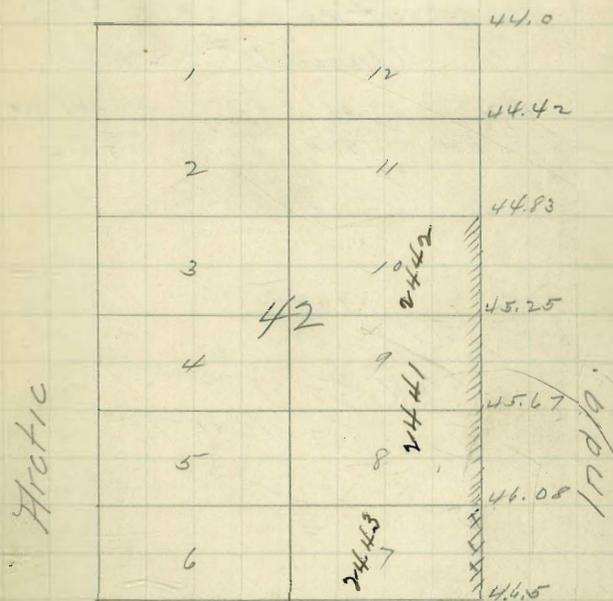 44.0
1 12
44.42
2 11
44.83
3 10 2442
45.25
42
4 9 2441
45.67
5 8
46.08
6 7 2443
46.5
Arctic